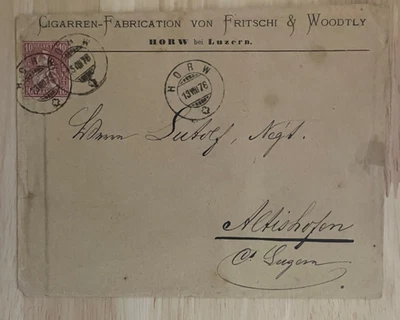 CIGARREN-FABRICATION VON FRITSCHI & WOODTLY
HORW bei Luzern.
HORW
HORW
HORW
13 VIII 76
Herrn Lutolf, Negt.
Altishofen
Ct. Luzern